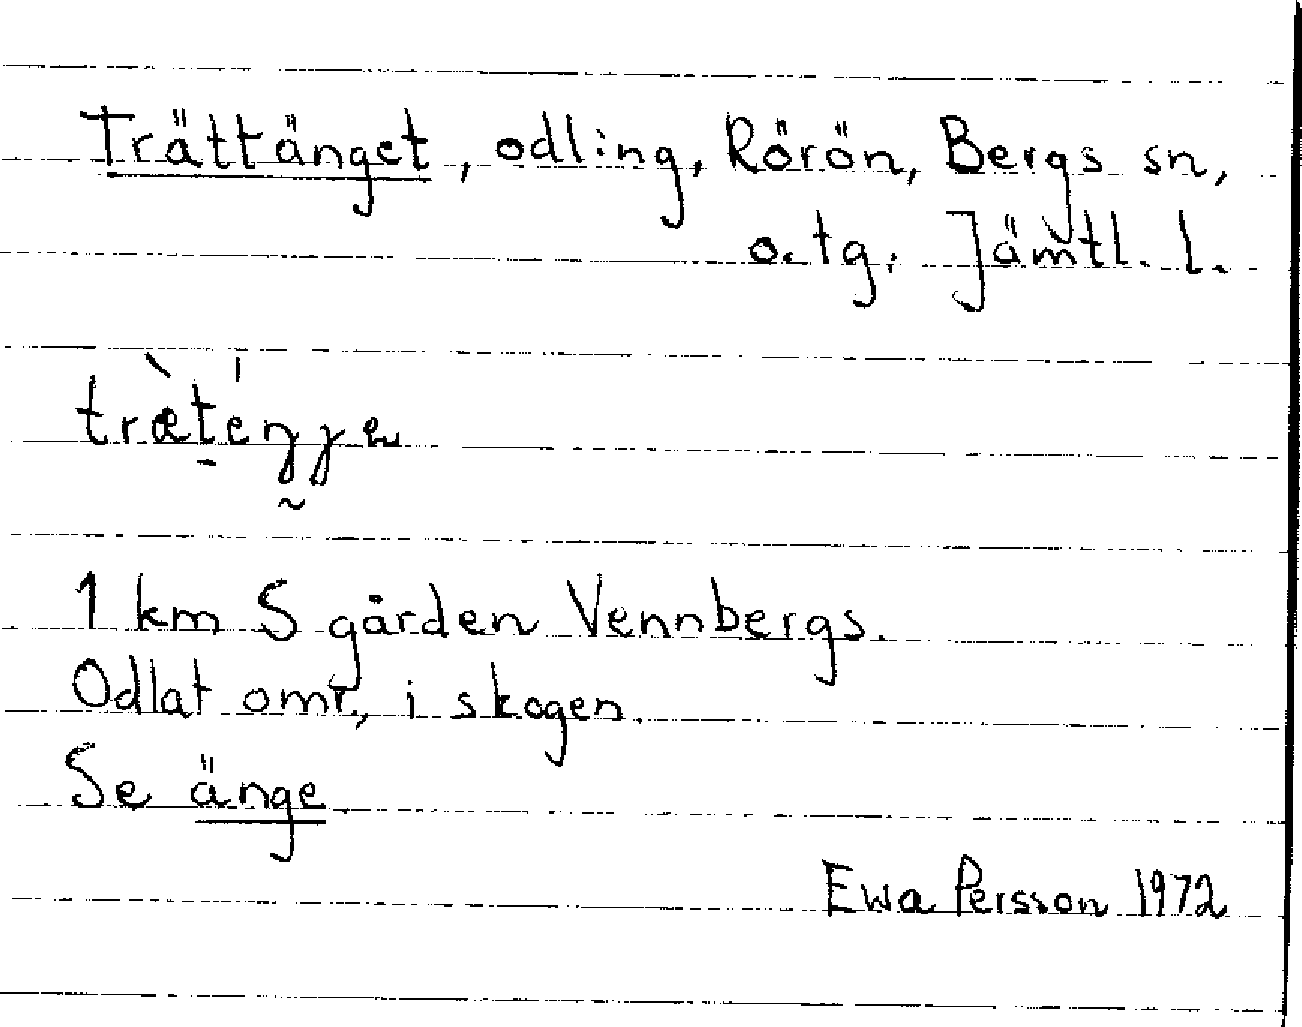 Trättänget, odling, Rörön, Bergs sn,
o. tg. Jämtl. l.
1 km S gården Vennbergs.
Odlat omr., i skogen.
Se änge
Ewa Persson 1972